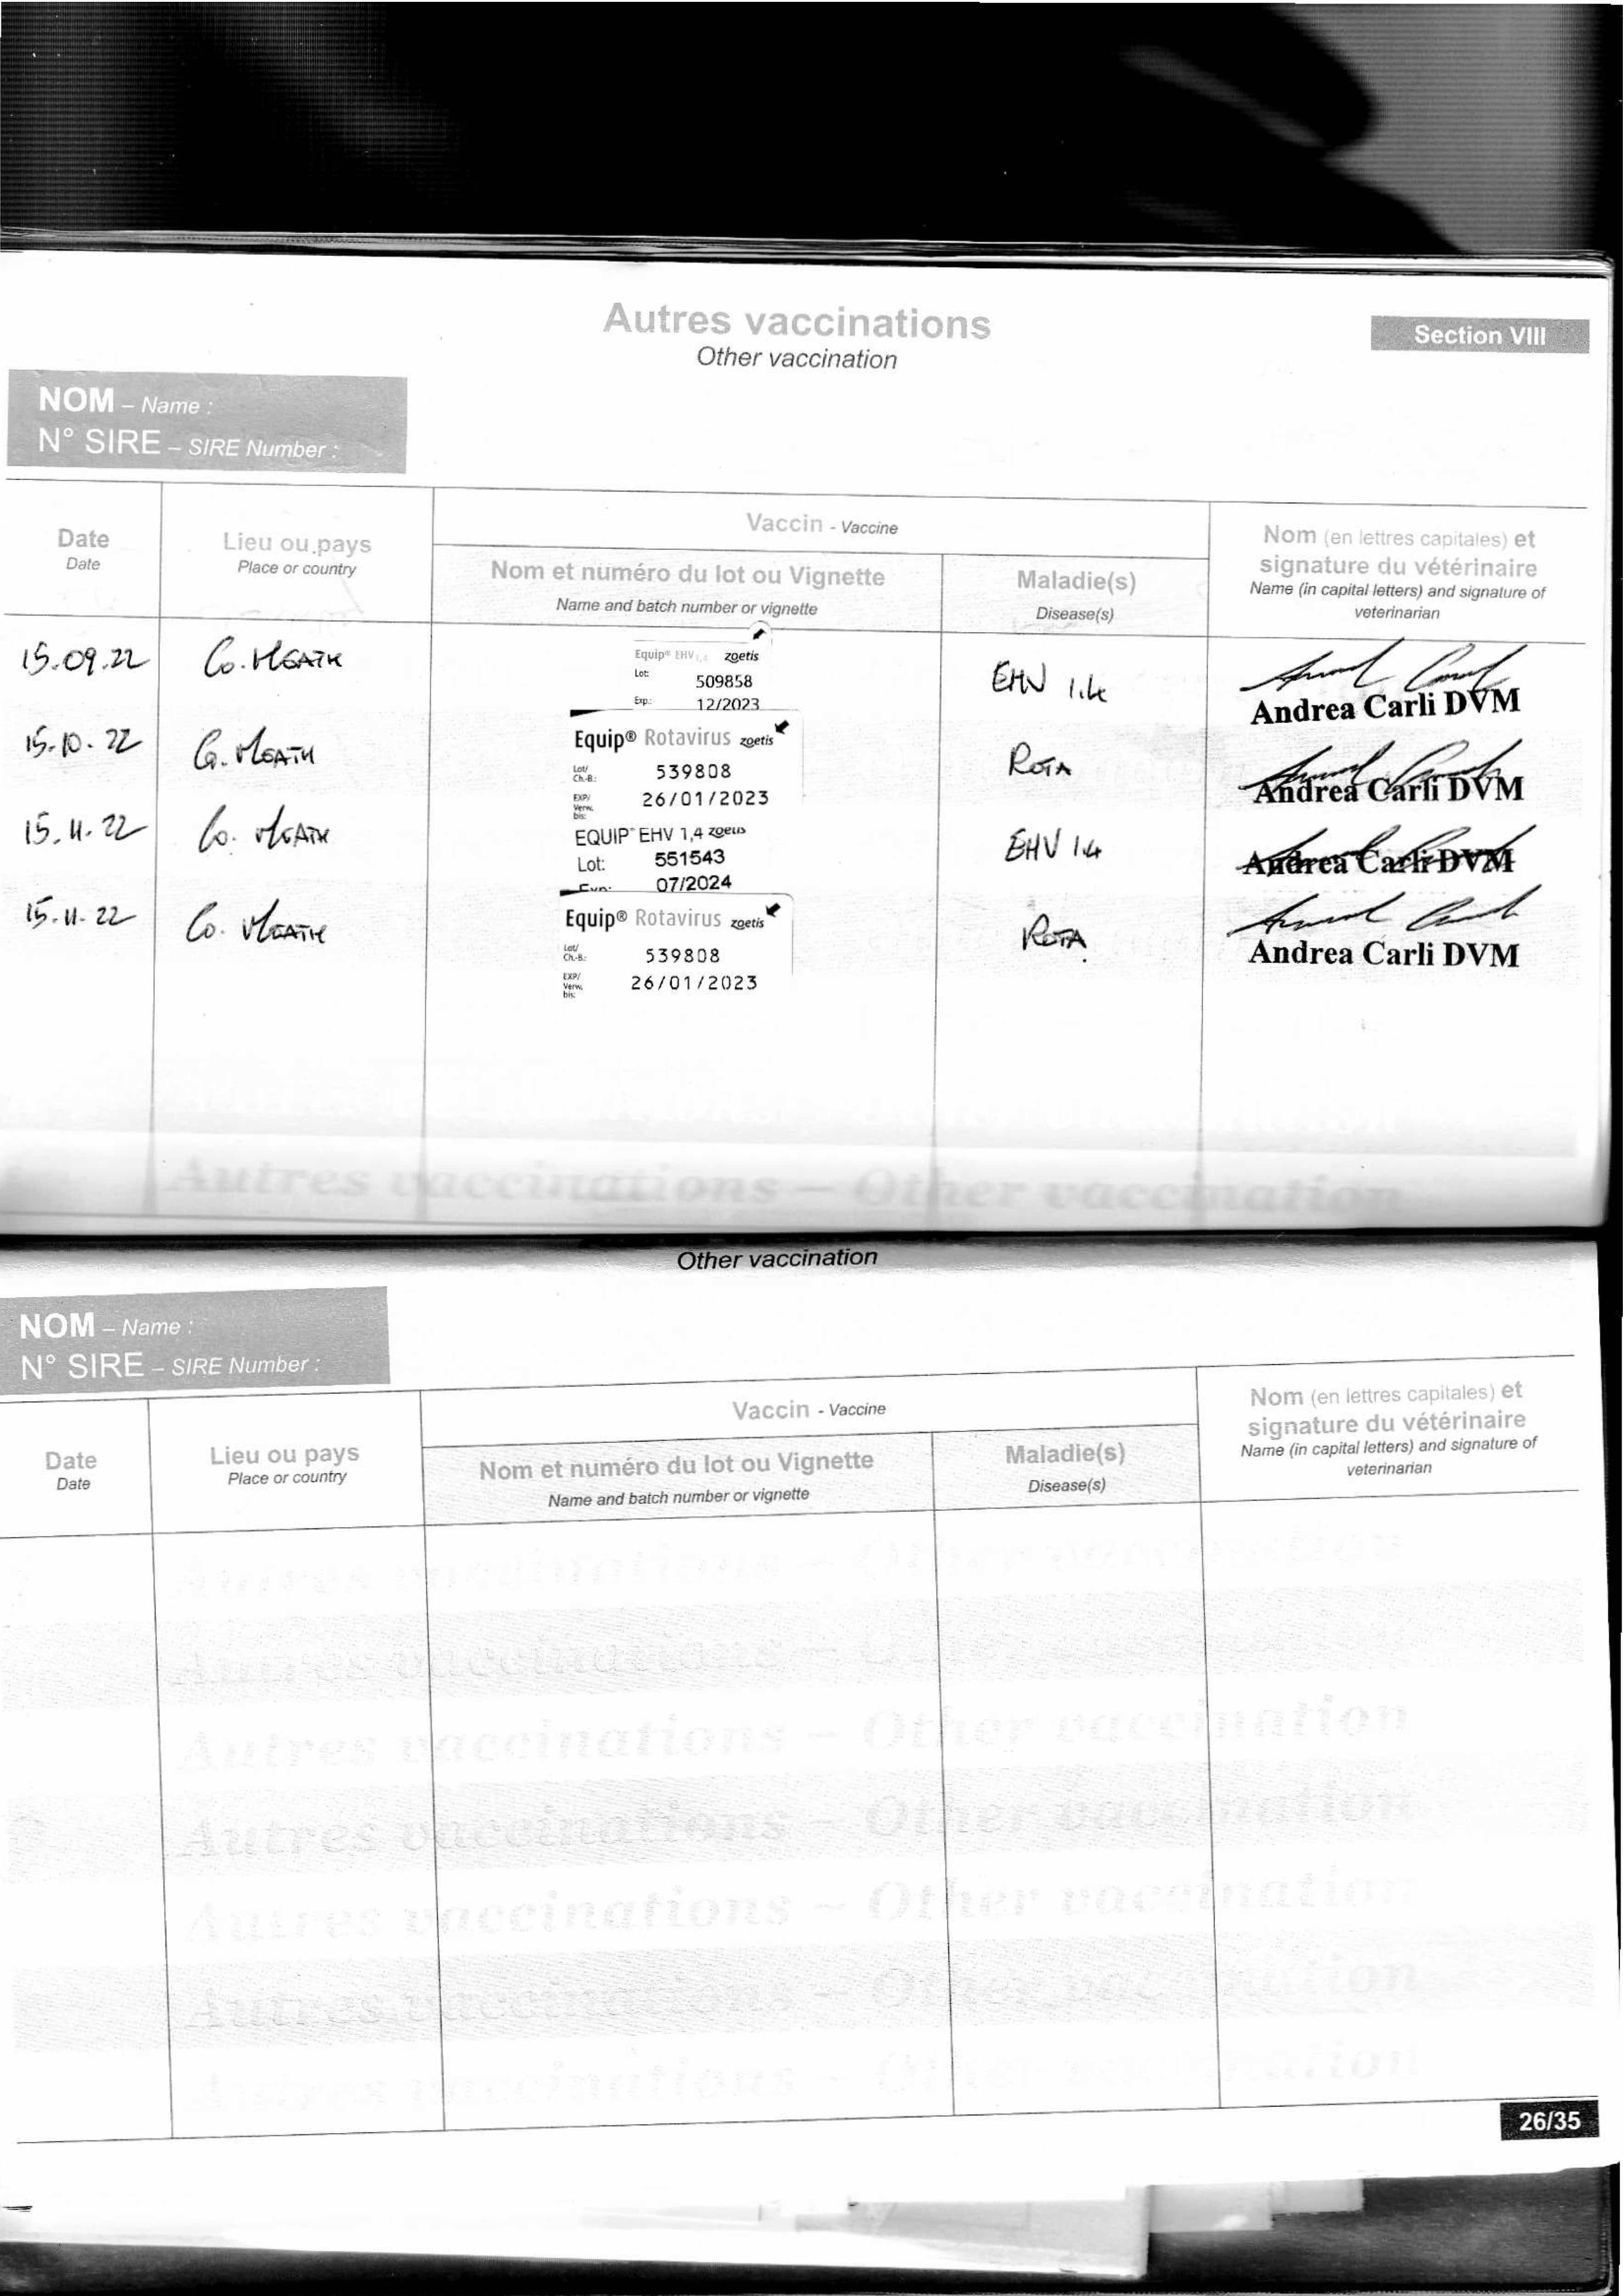 Autres vaccinations
Other vaccination
Section VIII
NOM – Name :
N° SIRE – SIRE Number :
Date
Date
Lieu ou pays
Place or country
Vaccin - Vaccine
Nom et numéro du lot ou Vignette
Name and batch number or vignette
Maladie(s)
Disease(s)
Nom (en lettres capitales) et
signature du vétérinaire
Name (in capital letters) and signature of
veterinarian
15.09.22
Co. MEATH
Equip® EHV 1,4 zoetis
Lot: 509858
Exp.: 12/2023
EHV 1.4
Andrea Carli DVM
15.10.22
Co. MEATH
Equip® Rotavirus zoetis
Lot/ Ch.-B.: 539808
EXP/ Verw. bis: 26/01/2023
ROTA
Andrea Carli DVM
15.11.22
Co. MEATH
EQUIP® EHV 1,4 zoetis
Lot: 551543
Exp: 07/2024
EHV 1.4
Andrea Carli DVM
15.11.22
Co. MEATH
Equip® Rotavirus zoetis
Lot/ Ch.-B.: 539808
EXP/ Verw. bis: 26/01/2023
ROTA
Andrea Carli DVM
Autres vaccinations – Other vaccination
Other vaccination
NOM – Name :
N° SIRE – SIRE Number :
Date
Date
Lieu ou pays
Place or country
Vaccin - Vaccine
Nom et numéro du lot ou Vignette
Name and batch number or vignette
Maladie(s)
Disease(s)
Nom (en lettres capitales) et
signature du vétérinaire
Name (in capital letters) and signature of
veterinarian
Autres vaccinations – Other vaccination
Autres vaccinations – Other vaccination
Autres vaccinations – Other vaccination
Autres vaccinations – Other vaccination
Autres vaccinations – Other vaccination
Autres vaccinations – Other vaccination
Autres vaccinations – Other vaccination
26/35